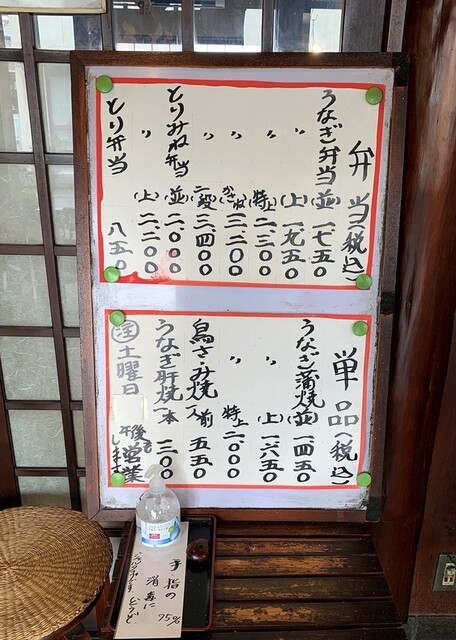 弁当(税込)
うなぎ弁当(並)一七五〇
〃(上)一九五〇
〃(特上)二三〇〇
〃(かさね)三二〇〇
〃(二段)三四〇〇
とりみね弁当(並)二〇〇〇
〃(上)二二〇〇
とり弁当 八五〇
単品(税込)
うなぎ蒲焼(並)一四五〇
〃(上)一六五〇
〃 特上 二〇〇〇
鳥ささみ焼 一人前 五五〇
うなぎ肝焼一本 三〇〇
注 土曜日 午後も営業します
手指の
消毒に 75%
どうぞ